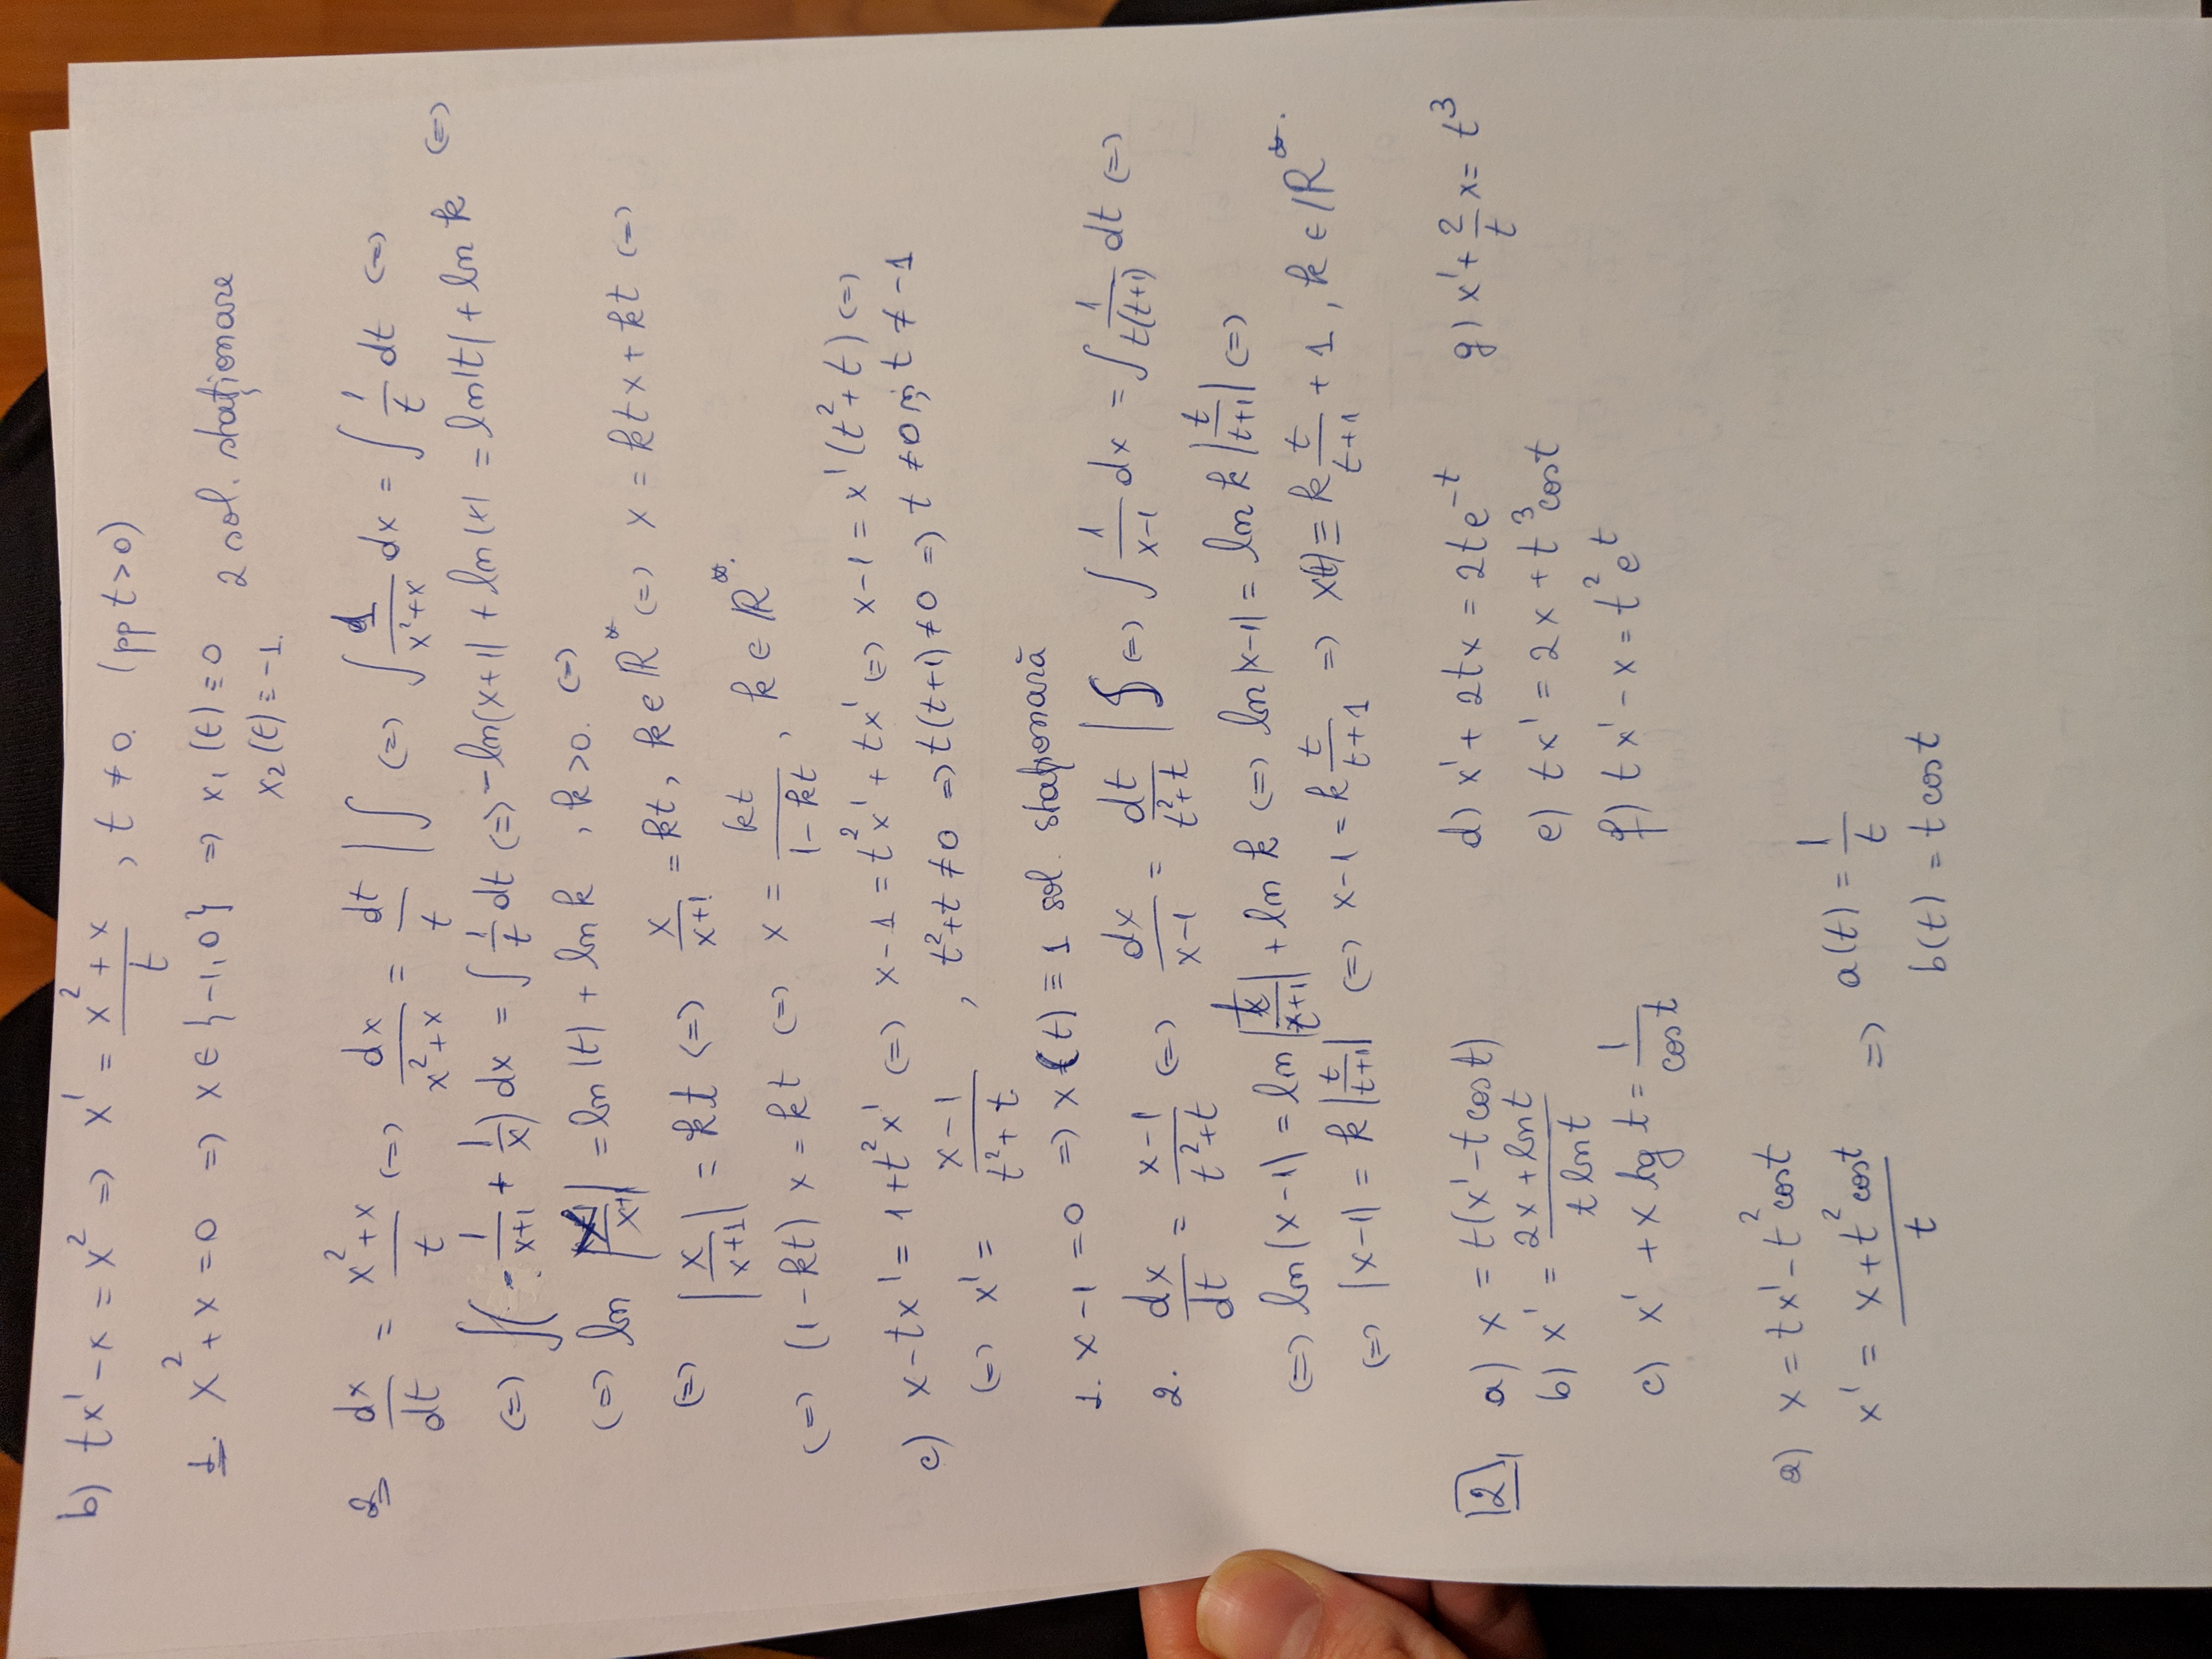 b) tx' - x = x² => x' = (x² + x)/t , t ≠ 0. (pp t>0)
1. x² + x = 0 => x ∈ {-1, 0} => x₁(t) ≡ 0 2 sol. staționare
x₂(t) ≡ -1.
2 dx/dt = (x²+x)/t (=) dx/(x²+x) = dt/t | ∫ (=) ∫ 1/(x²+x) dx = ∫ 1/t dt (=)
(=) ∫(-1/(x+1) + 1/x) dx = ∫ 1/t dt (=) -ln|x+1| + ln|x| = ln|t| + ln k (=)
(=) ln |x/(x+1)| = ln|t| + ln k , k>0. (=)
(=) |x/(x+1)| = kt (=) x/(x+1) = kt, k ∈ ℝ* (=) x = ktx + kt (=)
(=) (1-kt) x = kt (=) x = kt/(1-kt) , k ∈ ℝ*.
c) x - tx' = 1 + t²x' (=) x - 1 = t²x' + tx' (=) x-1 = x'(t²+t) (=)
(=) x' = (x-1)/(t²+t) , t²+t ≠ 0 => t(t+1) ≠ 0 => t ≠ 0 și t ≠ -1
1. x-1 = 0 => x(t) ≡ 1 sol. staționară
2. dx/dt = (x-1)/(t²+t) (=) dx/(x-1) = dt/(t²+t) | ∫ (=) ∫ 1/(x-1) dx = ∫ 1/(t(t+1)) dt (=)
(=) ln|x-1| = ln|t/(t+1)| + ln k (=) ln|x-1| = ln k |t/(t+1)| (=)
(=) |x-1| = k |t/(t+1)| (=) x-1 = k t/(t+1) => x(t) ≡ k t/(t+1) + 1 , k ∈ ℝ*.
2, a) x = t(x' - t cos t) d) x' + 2tx = 2te^(-t) g) x' + 2/t x = t³
b) x' = (2x + ln t)/(t ln t) e) tx' = 2x + t³ cos t
c) x' + x tg t = 1/cos t f) tx' - x = t²e^t
a) x = tx' - t² cos t
x' = (x + t² cos t)/t => a(t) = 1/t
b(t) = t cos t